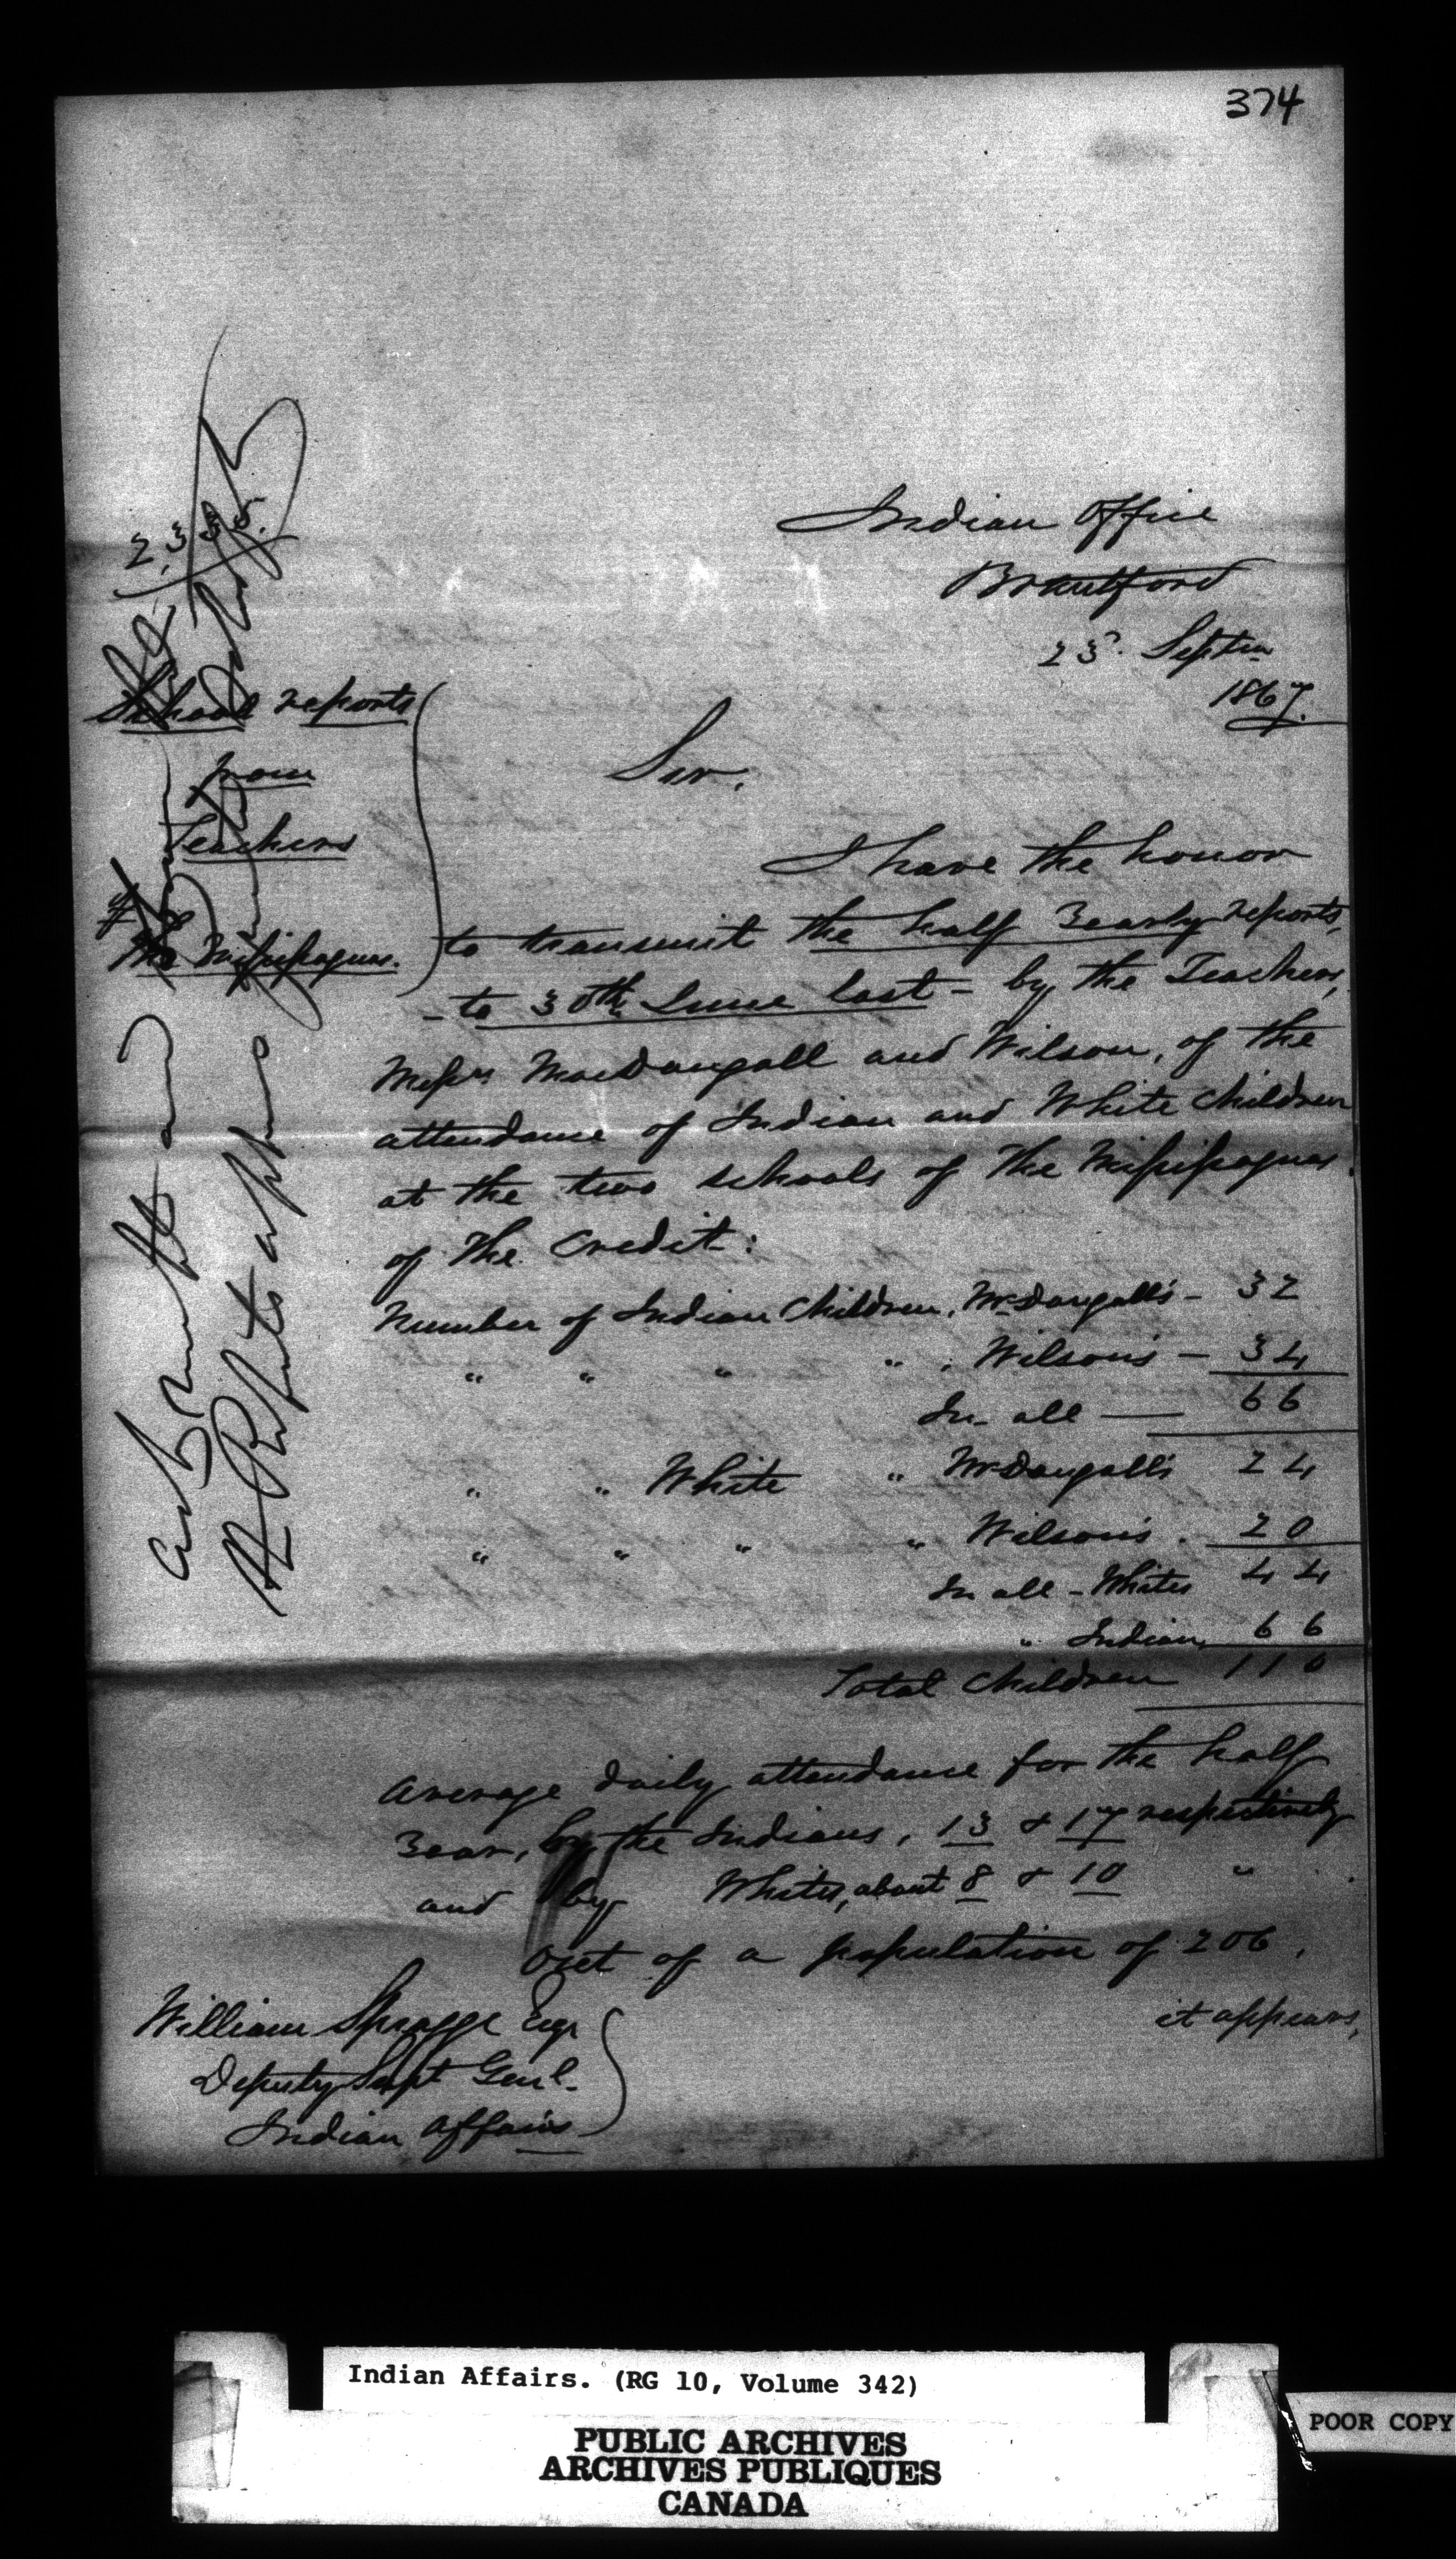 374
Indian Office
Brantford
23d. Septem
1867.
2,335.
School reports
from
Teachers
of
the Missisaguas.
Sir,
I have the honor
to transmit the half Yearly reports,
- to 30th June last - by the Teachers,
Messrs MacDougall and Wilson, of the
attendance of Indian and White Children
at the two schools of the Missisaguas
of the Credit:
Number of Indian Children, McDougall's - 32
" " " " , Wilson's - 34
In all — 66
" " White " McDougall's 24
" " " " Wilson's . 20
In all - Whites 44
" Indian, 66
Total Children 110
Average daily attendance for the half
Year, by the Indians, 13 & 17 respectively
and by Whites, about 8 & 10 " .
Out of a population of 206,
it appears,
William Spragge Esqr
Deputy Supt Genl.
Indian Affairs
Indian Affairs. (RG 10, Volume 342)
PUBLIC ARCHIVES
ARCHIVES PUBLIQUES
CANADA
POOR COPY